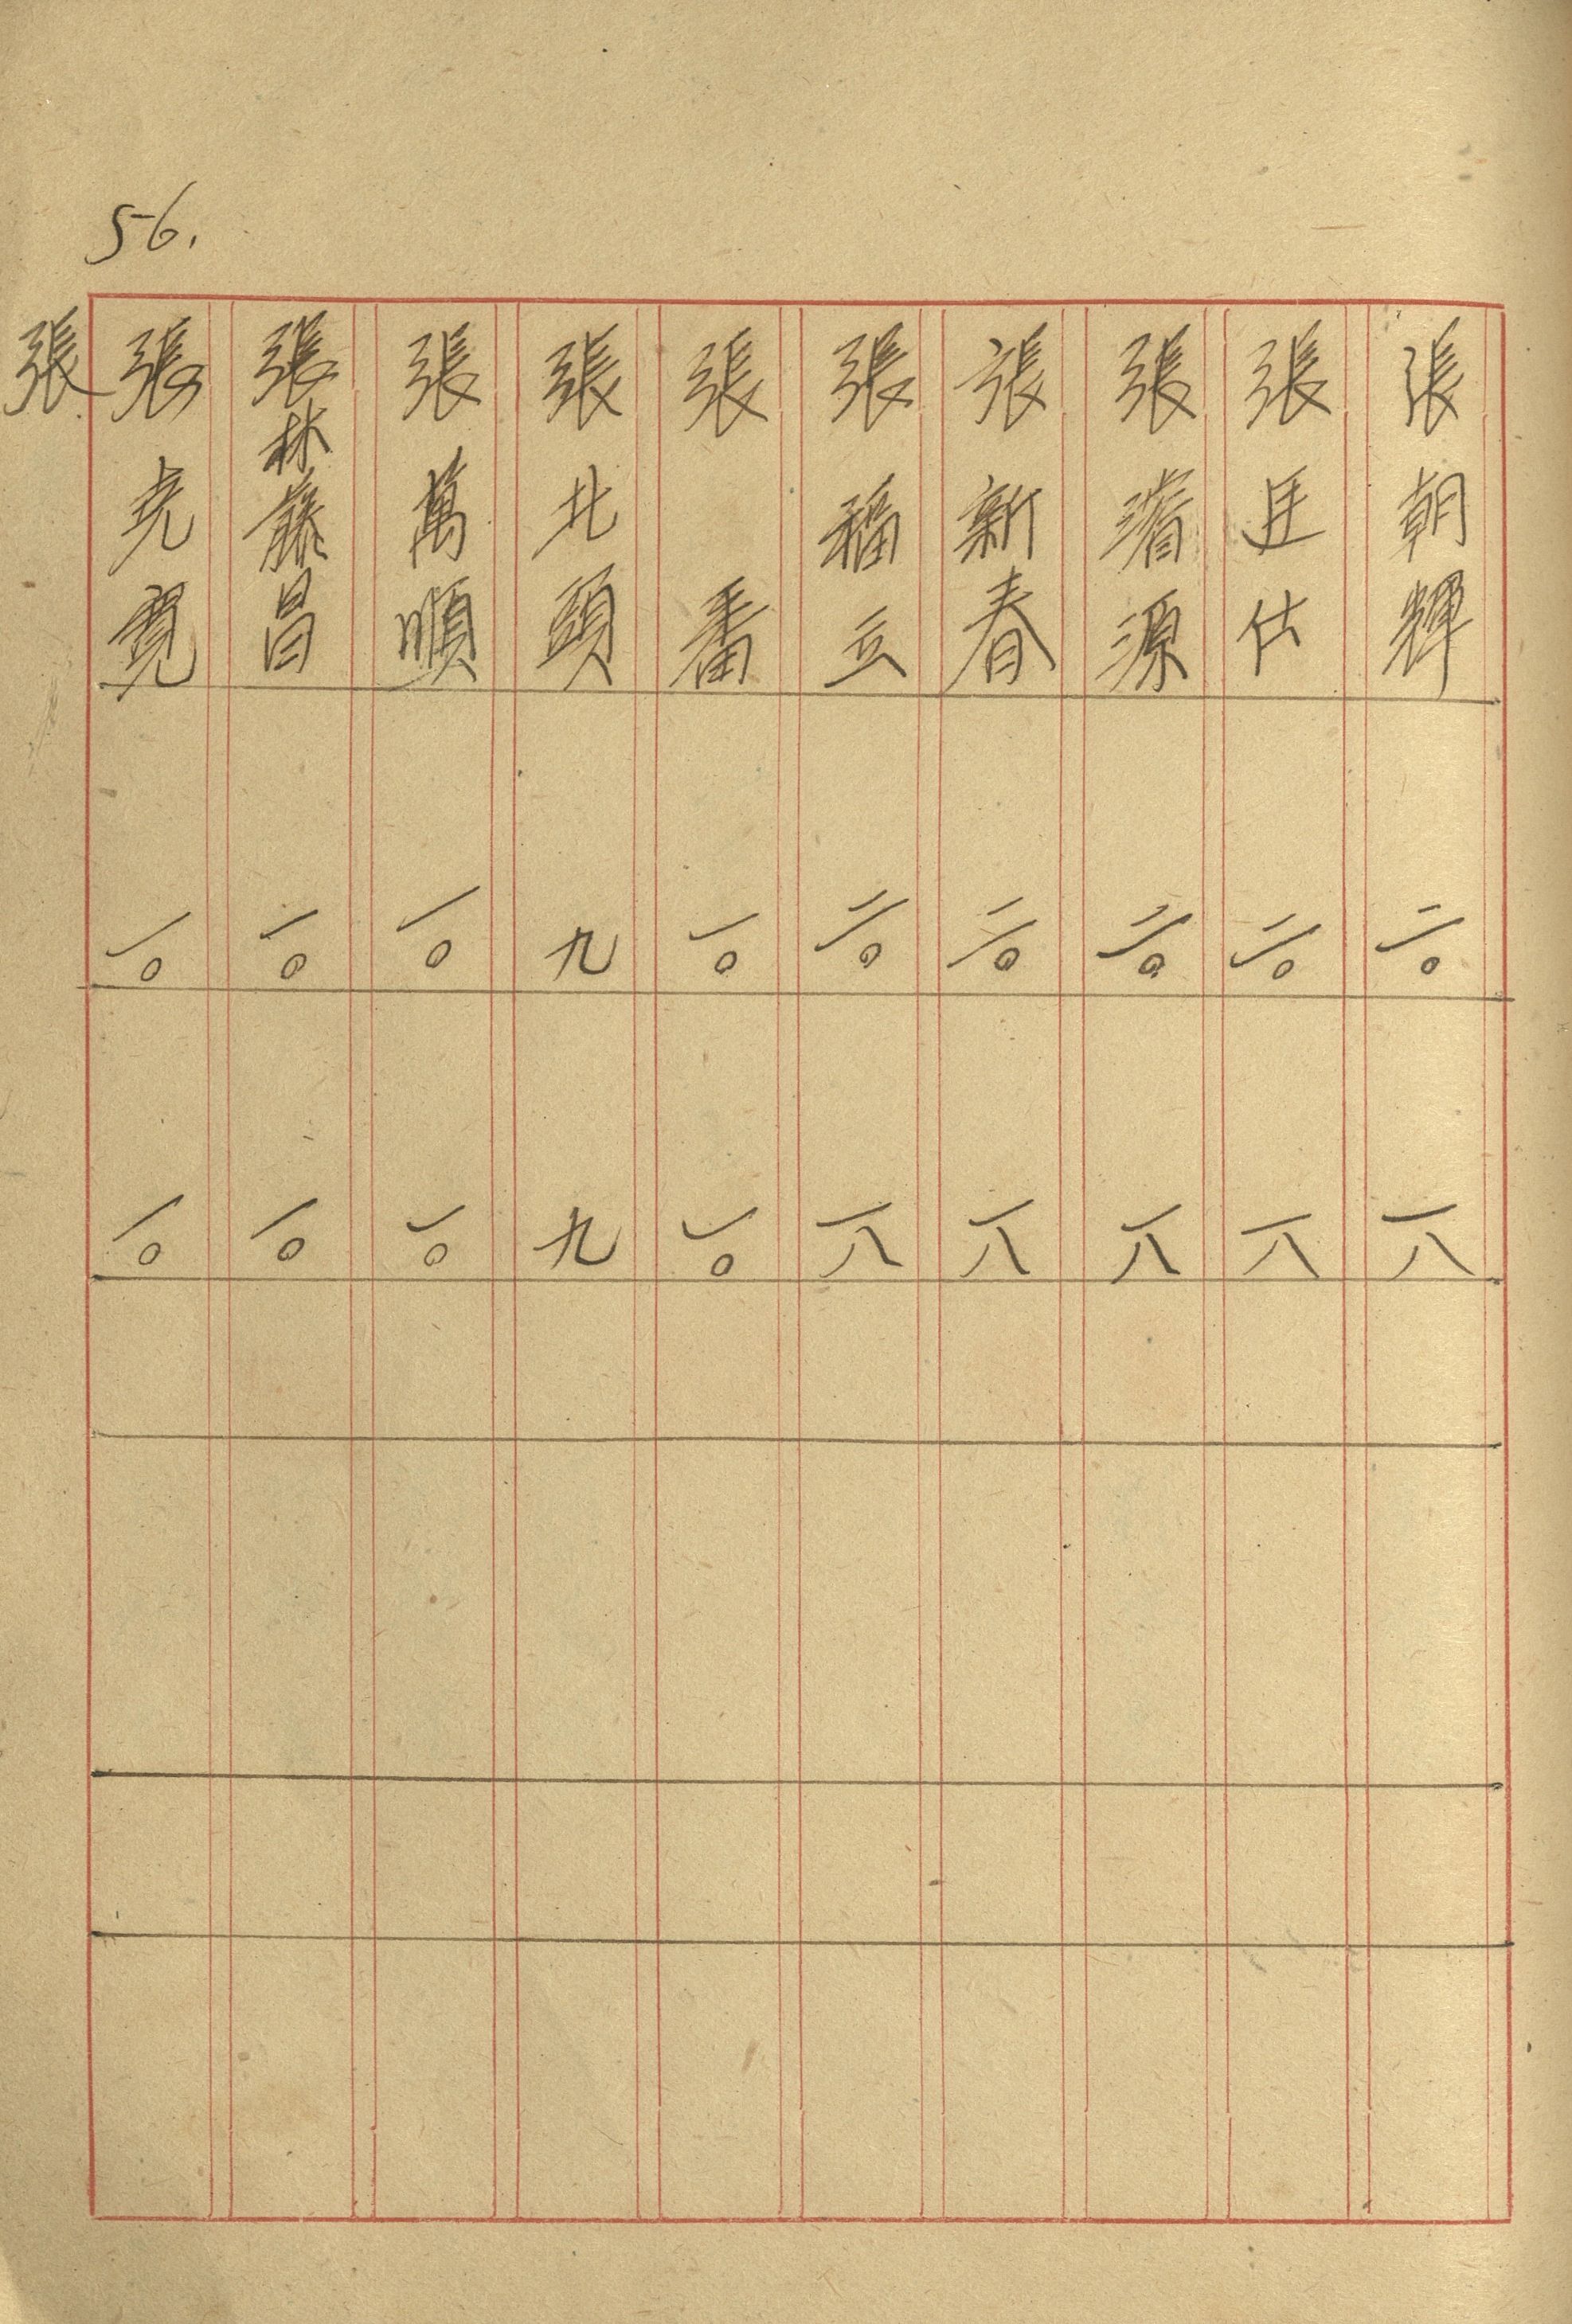 56.
張朝輝 二〇 一八
張廷仕 二〇 一八
張瀦源 二〇 一八
張新春 二〇 一八
張福立 二〇 一八
張番 一〇 一〇
張北頭 九 九
張萬順 一〇 一〇
張林藤昌 一〇 一〇
張尭寛 一〇 一〇
張